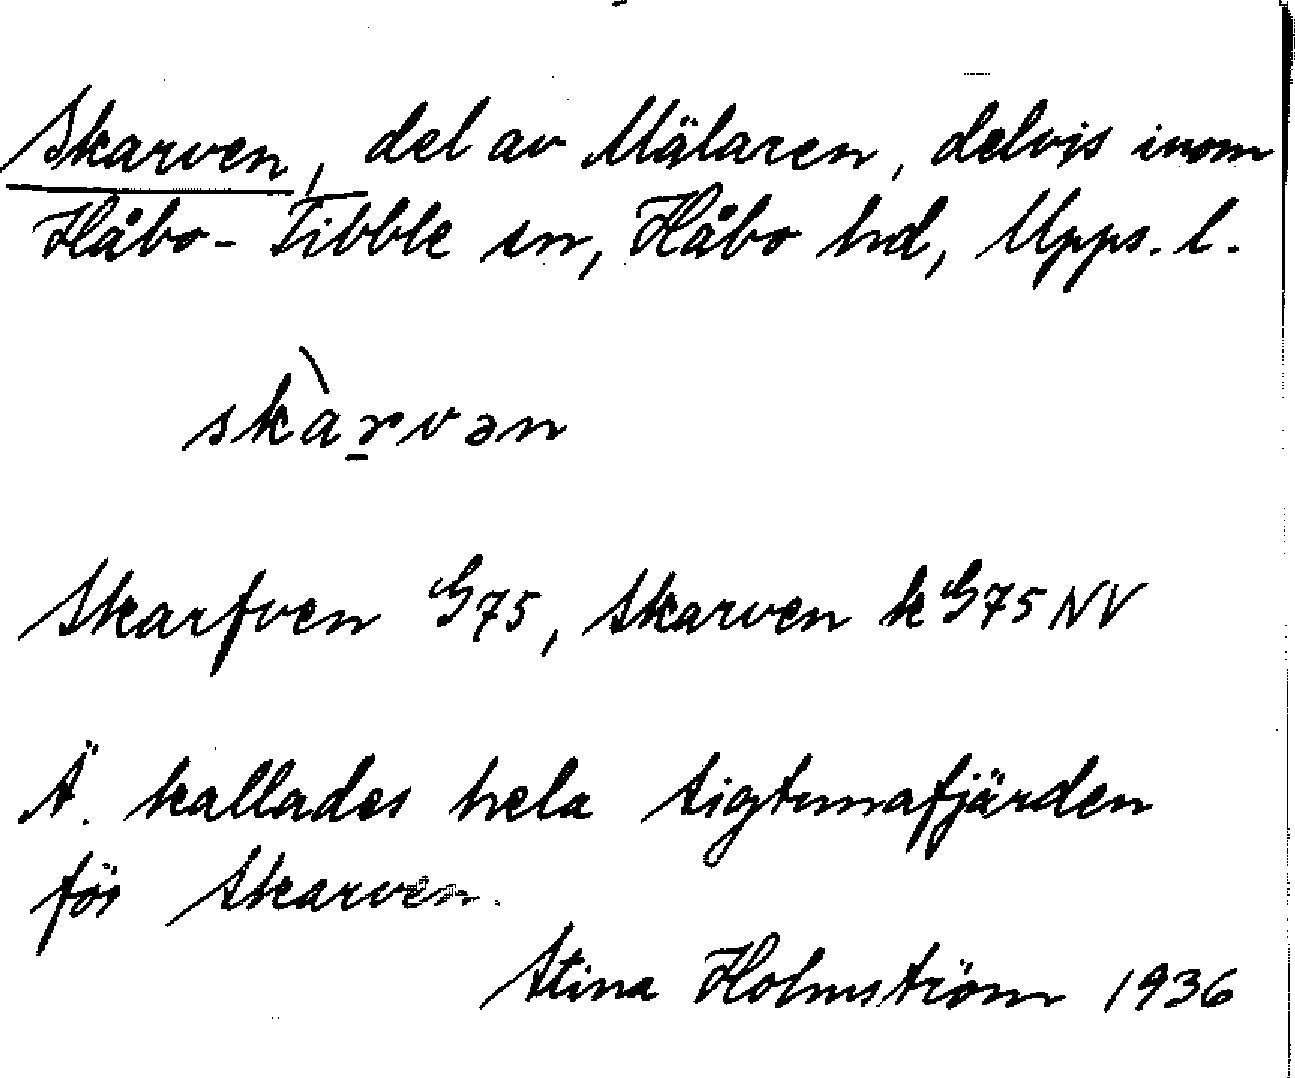 Skarven, del av Mälaren, delvis inom
Håbo-Tibble sn, Håbo hd, Upps. l.
skàrvən
Skarfven G75, Skarven kG75NV
Ä. kallades hela Sigtunafjärden
för Skarven.
Stina Holmström 1936